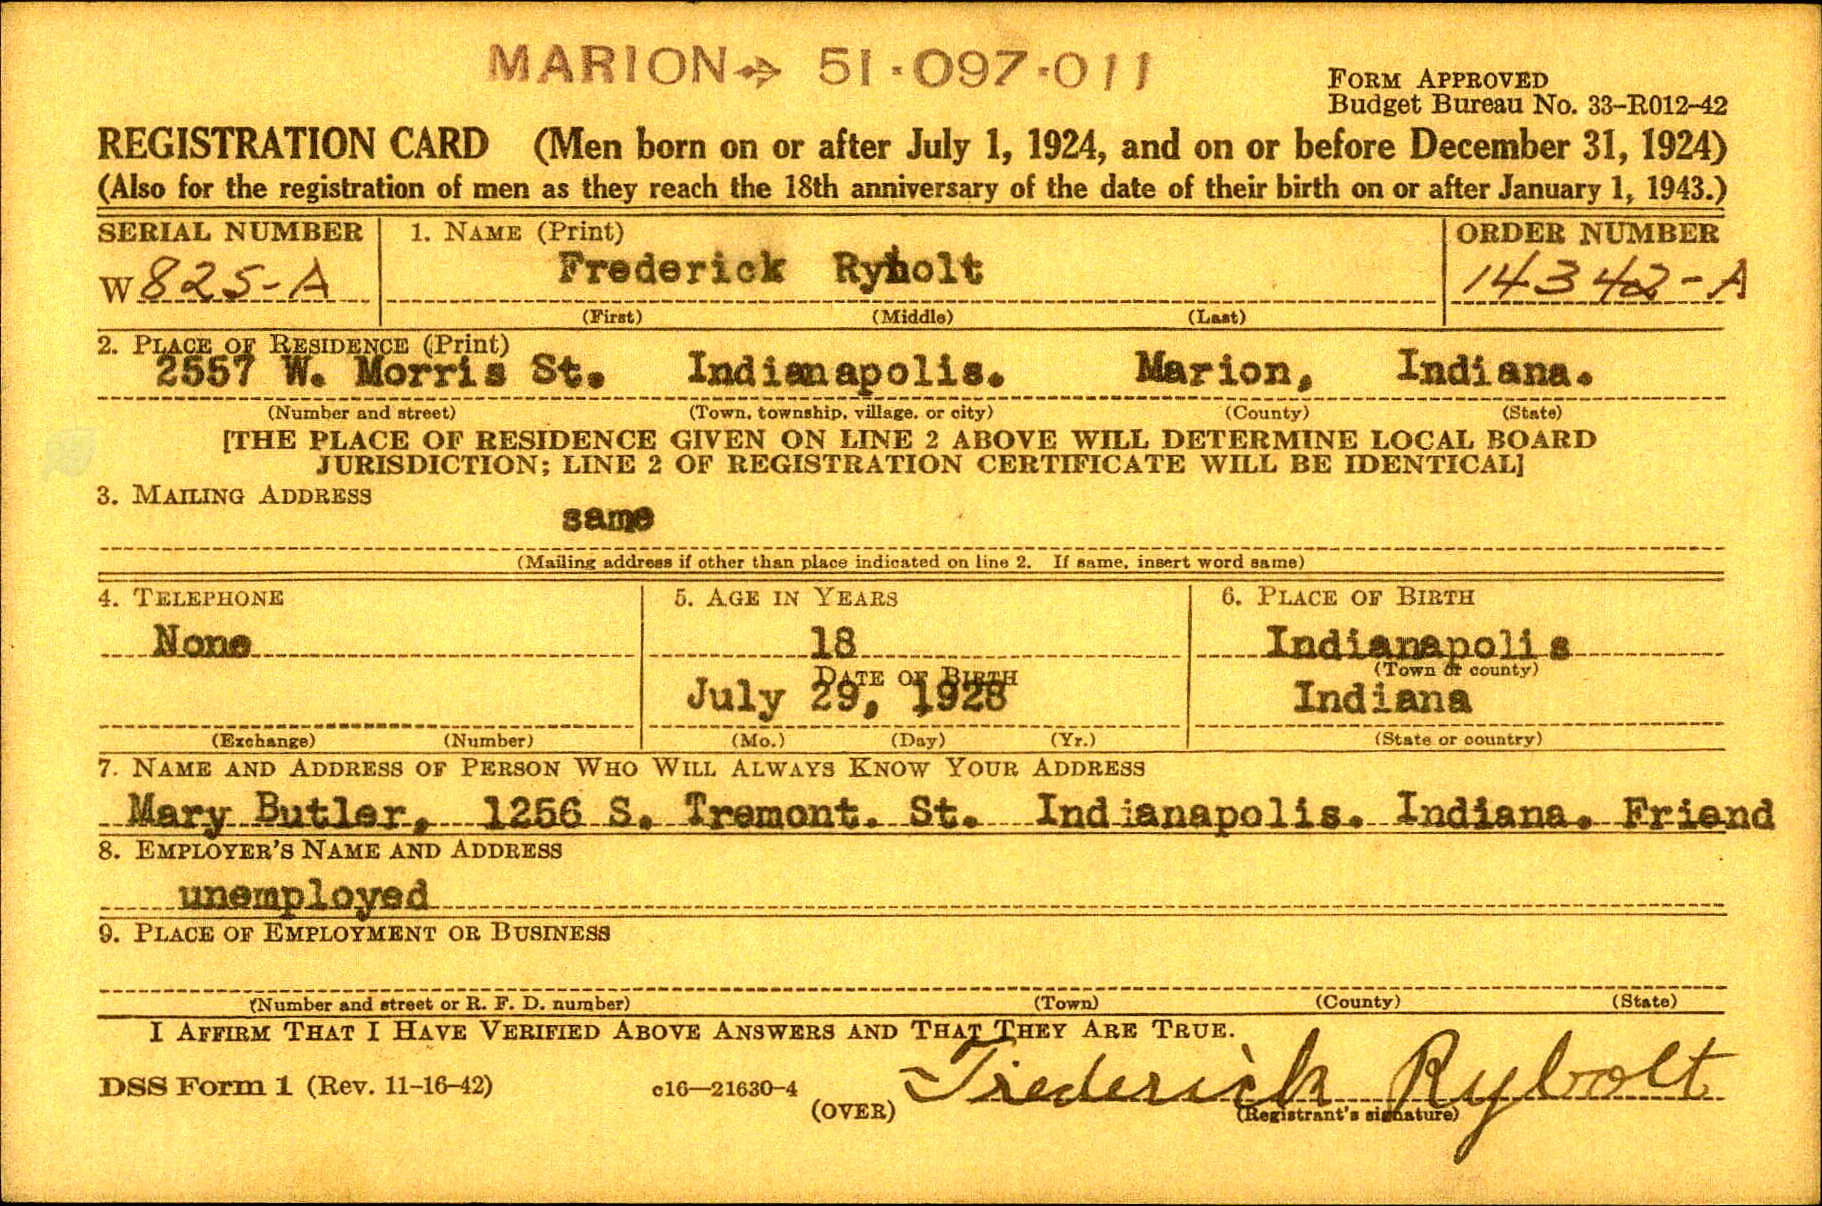 MARION➔ 51·097·011
FORM APPROVED
Budget Bureau No. 33–R012–42
REGISTRATION CARD (Men born on or after July 1, 1924, and on or before December 31, 1924)
(Also for the registration of men as they reach the 18th anniversary of the date of their birth on or after January 1, 1943.)
SERIAL NUMBER 1. NAME (Print) ORDER NUMBER
W 825-A Frederick Rybolt 14342-A
(First) (Middle) (Last)
2. PLACE OF RESIDENCE (Print)
2557 W. Morris St. Indianapolis. Marion, Indiana.
(Number and street) (Town, township, village, or city) (County) (State)
[THE PLACE OF RESIDENCE GIVEN ON LINE 2 ABOVE WILL DETERMINE LOCAL BOARD
JURISDICTION; LINE 2 OF REGISTRATION CERTIFICATE WILL BE IDENTICAL]
3. MAILING ADDRESS
same
(Mailing address if other than place indicated on line 2. If same, insert word same)
4. TELEPHONE 5. AGE IN YEARS 6. PLACE OF BIRTH
None 18 Indianapolis
DATE OF BIRTH (Town or county)
July 29, 1928 Indiana
(Exchange) (Number) (Mo.) (Day) (Yr.) (State or country)
7. NAME AND ADDRESS OF PERSON WHO WILL ALWAYS KNOW YOUR ADDRESS
Mary Butler, 1256 S. Tremont. St. Indianapolis. Indiana. Friend
8. EMPLOYER'S NAME AND ADDRESS
unemployed
9. PLACE OF EMPLOYMENT OR BUSINESS
(Number and street or R. F. D. number) (Town) (County) (State)
I AFFIRM THAT I HAVE VERIFIED ABOVE ANSWERS AND THAT THEY ARE TRUE.
DSS Form 1 (Rev. 11–16–42) c16—21630-4 Frederick Rybolt
(OVER) (Registrant's signature)